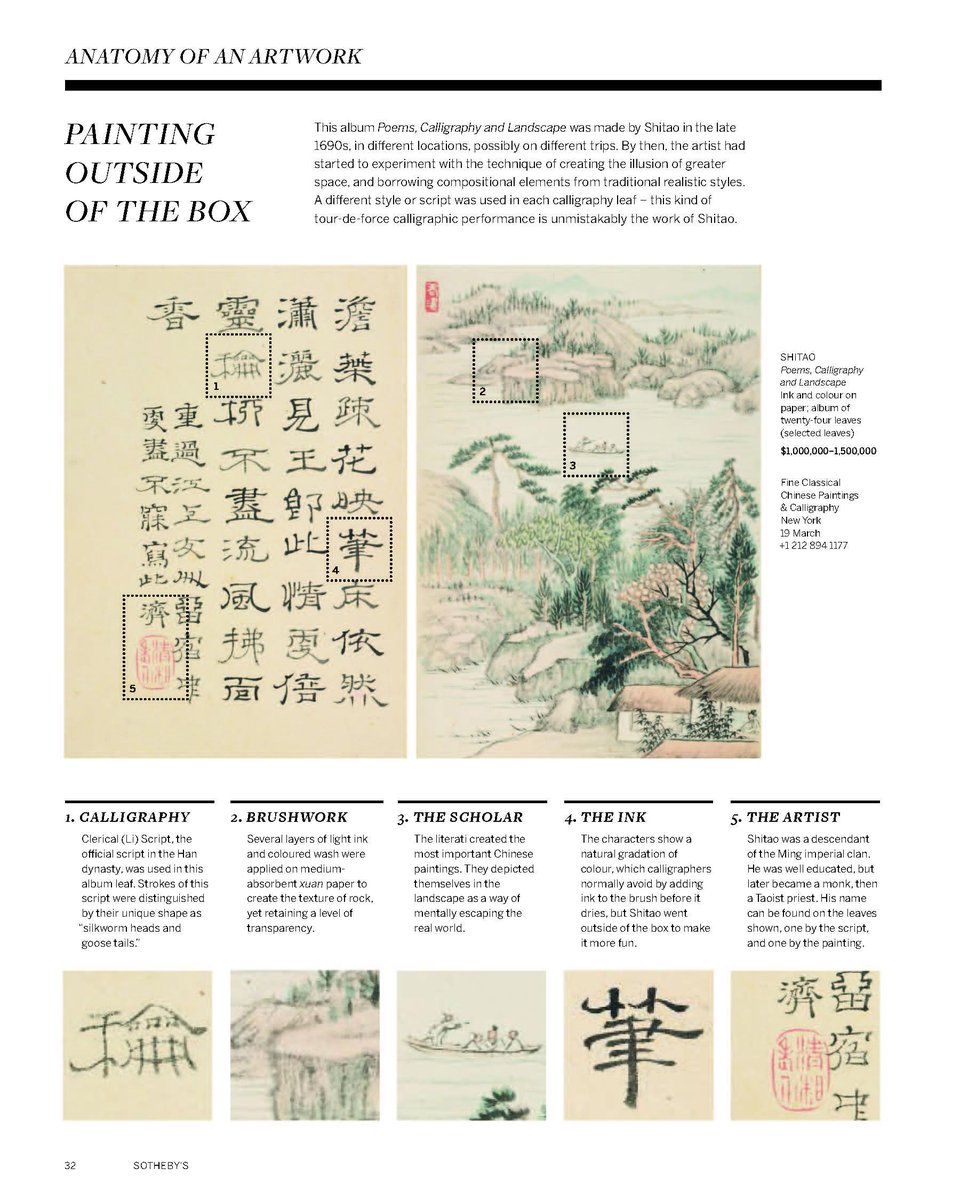 ANATOMY OF AN ARTWORK
PAINTING
OUTSIDE
OF THE BOX
This album Poems, Calligraphy and Landscape was made by Shitao in the late
1690s, in different locations, possibly on different trips. By then, the artist had
started to experiment with the technique of creating the illusion of greater
space, and borrowing compositional elements from traditional realistic styles.
A different style or script was used in each calligraphy leaf – this kind of
tour-de-force calligraphic performance is unmistakably the work of Shitao.
澹葉疎花映筆床依然
瀟灑見王郎此情更倍
靈龢柳不盡流風拂面
香
重過江上友州留宿
更盡不寐寫此濟
1
4
5
2
3
SHITAO
Poems, Calligraphy
and Landscape
Ink and colour on
paper; album of
twenty-four leaves
(selected leaves)
$1,000,000–1,500,000
Fine Classical
Chinese Paintings
& Calligraphy
New York
19 March
+1 212 894 1177
1. CALLIGRAPHY
Clerical (Li) Script, the
official script in the Han
dynasty, was used in this
album leaf. Strokes of this
script were distinguished
by their unique shape as
“silkworm heads and
goose tails.”
2. BRUSHWORK
Several layers of light ink
and coloured wash were
applied on medium-
absorbent xuan paper to
create the texture of rock,
yet retaining a level of
transparency.
3. THE SCHOLAR
The literati created the
most important Chinese
paintings. They depicted
themselves in the
landscape as a way of
mentally escaping the
real world.
4. THE INK
The characters show a
natural gradation of
colour, which calligraphers
normally avoid by adding
ink to the brush before it
dries, but Shitao went
outside of the box to make
it more fun.
5. THE ARTIST
Shitao was a descendant
of the Ming imperial clan.
He was well educated, but
later became a monk, then
a Taoist priest. His name
can be found on the leaves
shown, one by the script,
and one by the painting.
龢
筆
留宿
濟
32
SOTHEBY'S